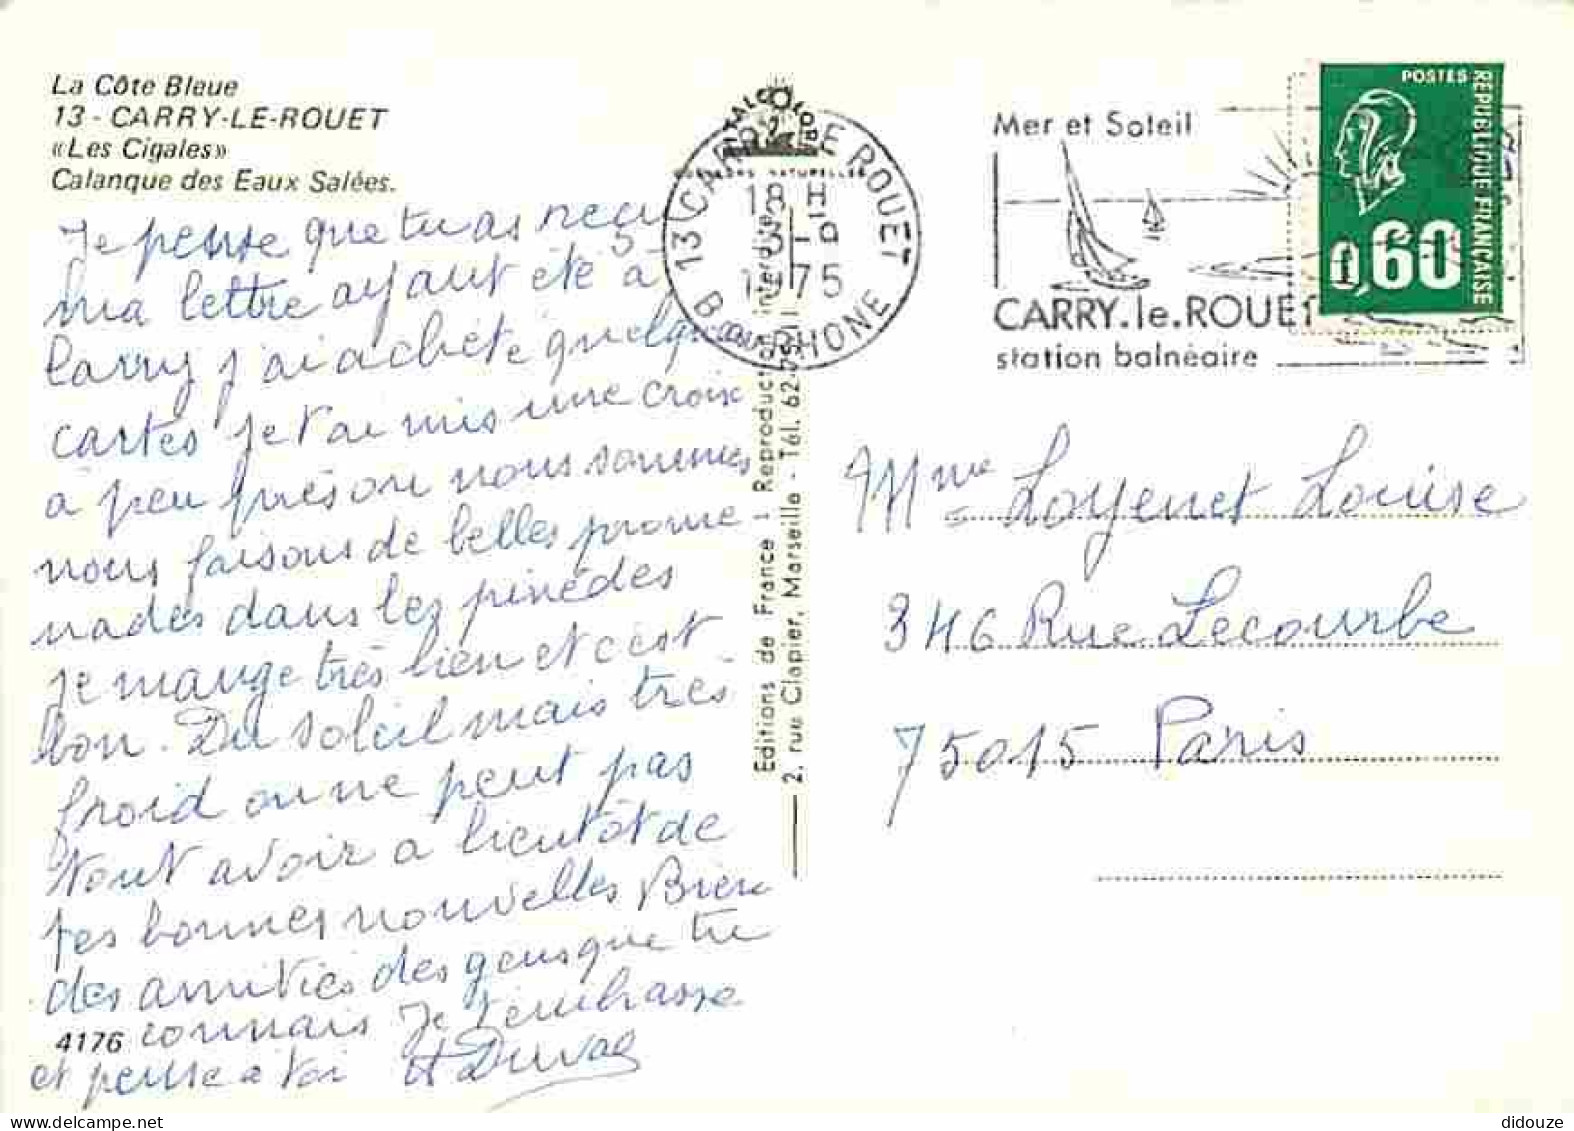 La Côte Bleue
13 - CARRY-LE-ROUET
«Les Cigales»
Calanque des Eaux Salées.
Je pense que tu as reçu
ma lettre ayant été à
Carry j'ai acheté quelques
cartes je t'ai mis une croix
à peu près ou nous sommes
nous faisons de belles prome
nades dans les pinèdes
je mange très bien et c'est
bon. Du soleil mais très
froid on ne peut pas
tout avoir a bientôt de
tes bonnes nouvelles Bien
des amitiés des gens que tu
connais Je t'embrasse
et pense a toi Duval
4176
Editions de France - Reproduction interdite
2, rue Clapier, Marseille - Tél. 62.
13 CARRY LE ROUET
18 H
1975
B. DU RHONE
Mer et Soleil
CARRY.le.ROUET
station balnéaire
POSTES
REPUBLIQUE FRANÇAISE
0,60
Mme Loyenet Louise
346 Rue Lecourbe
75015 Paris
didouze